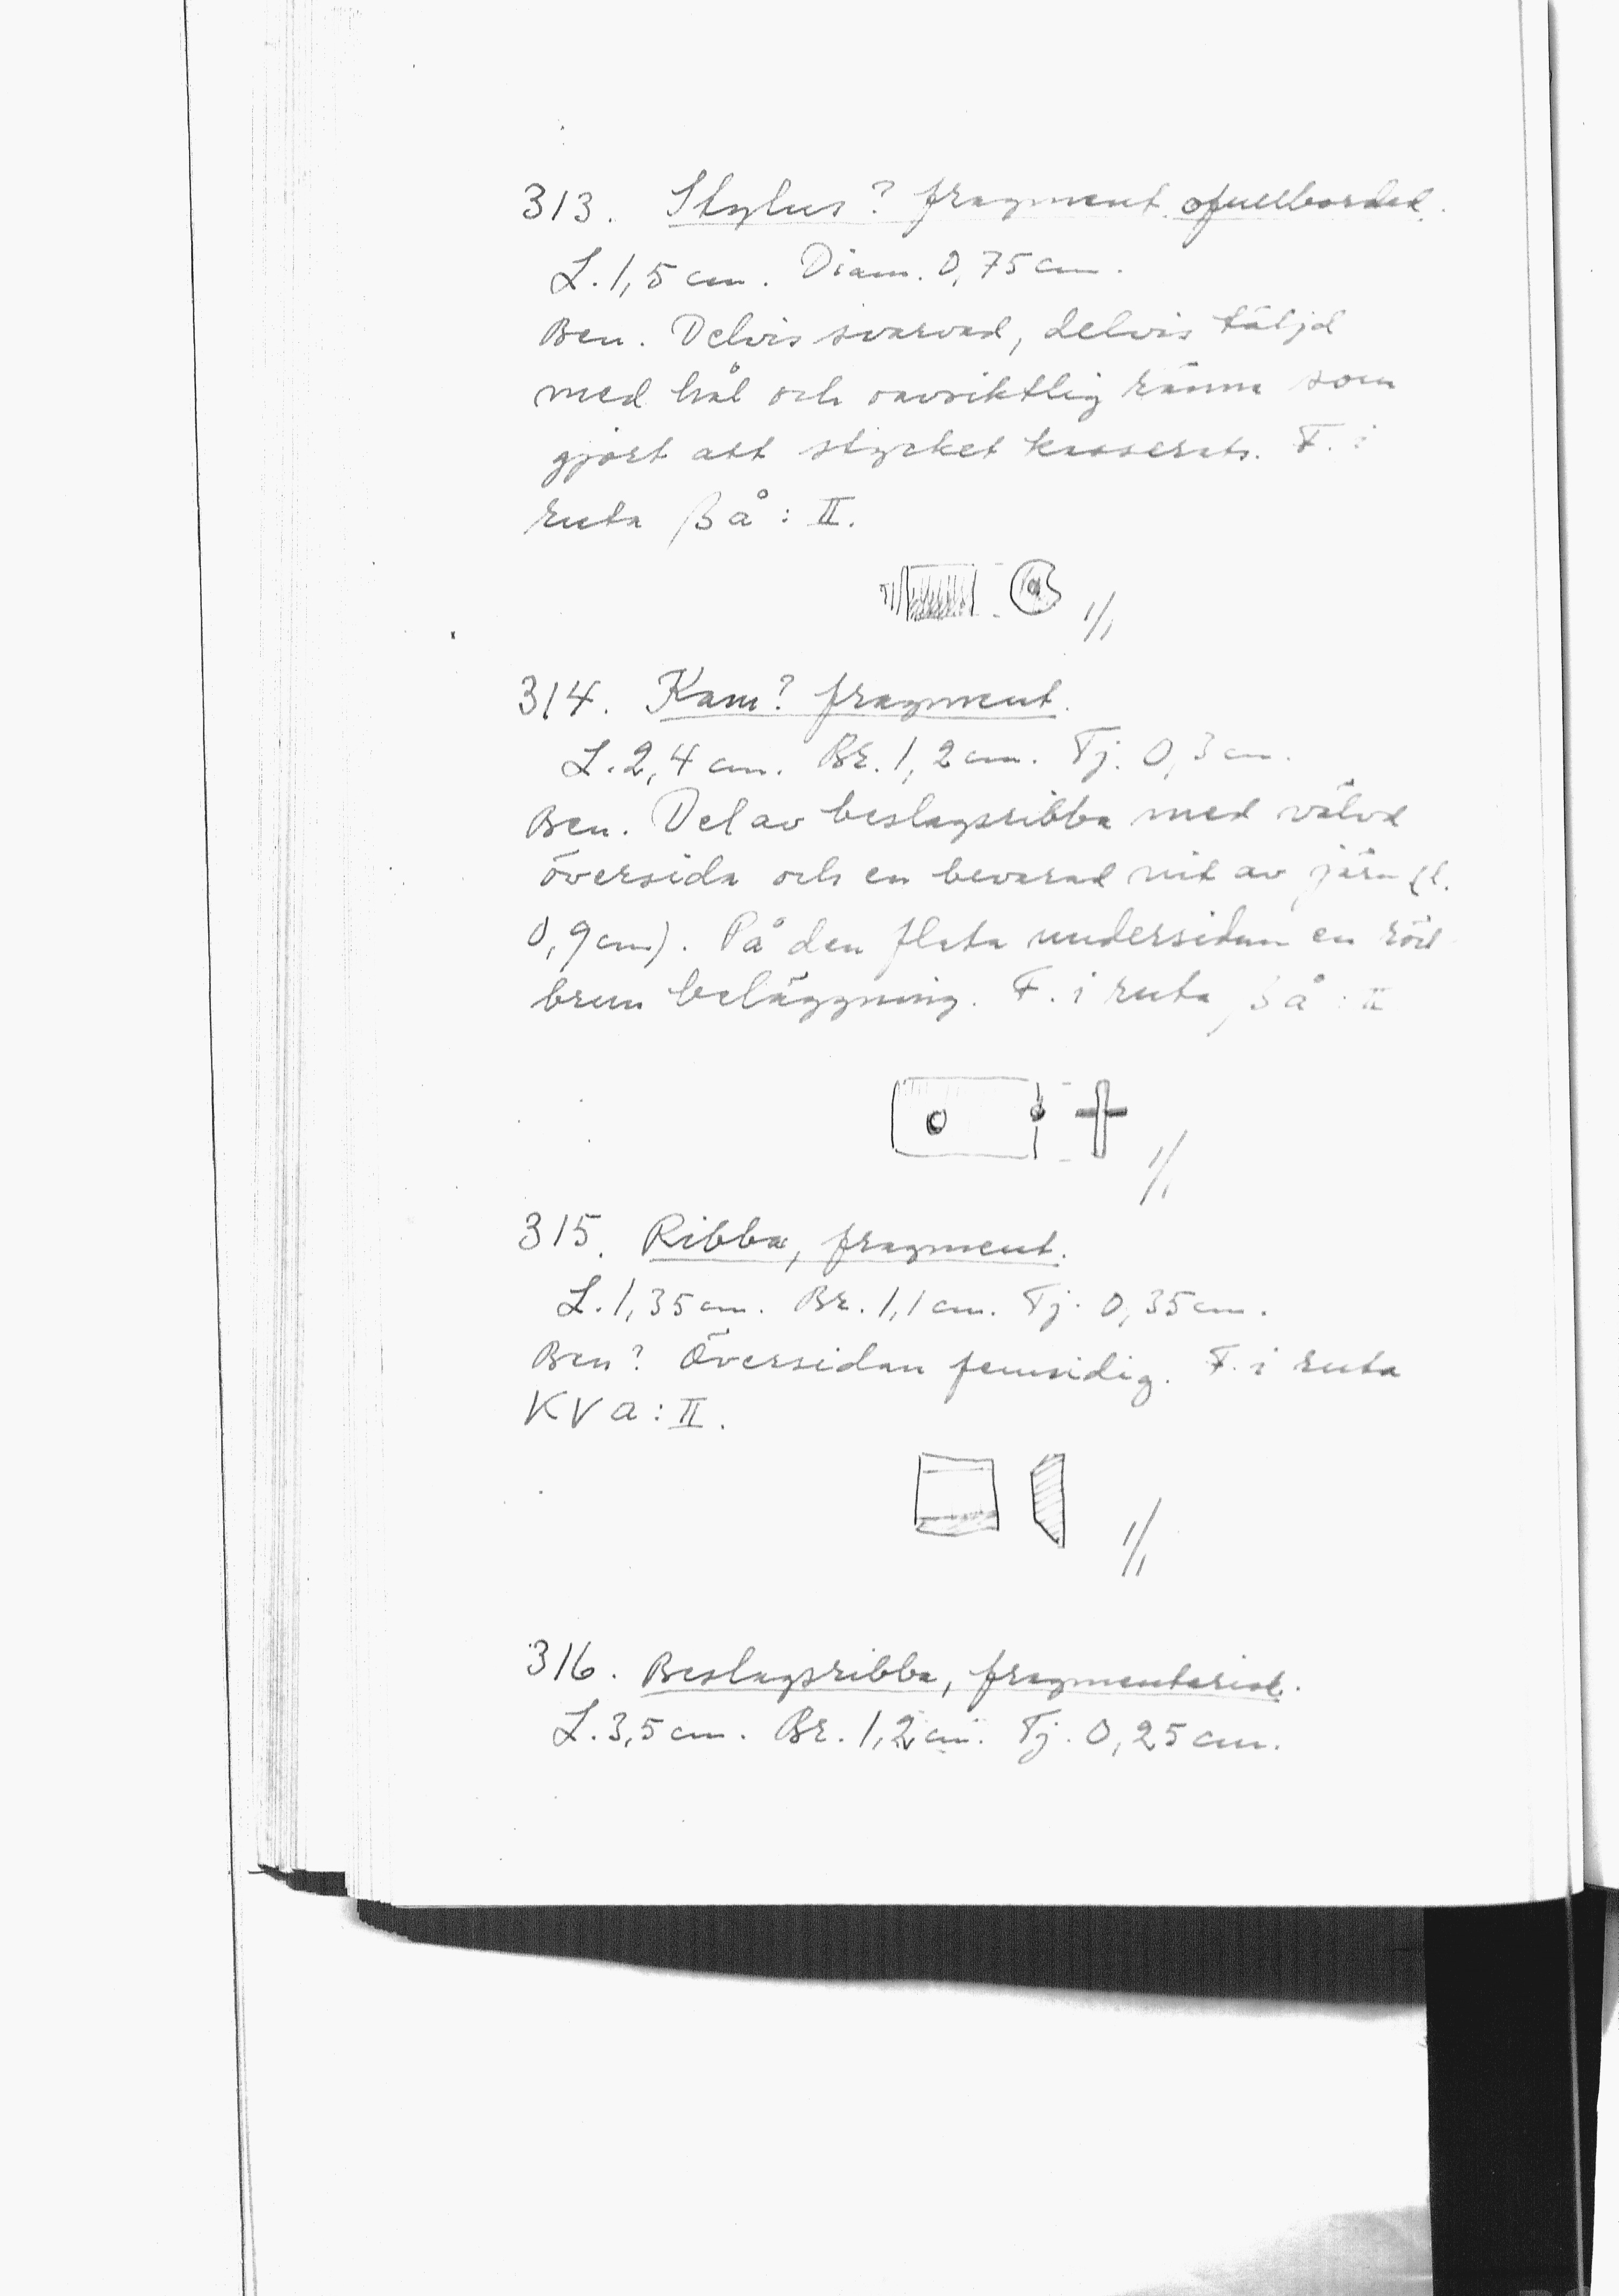 313. Stylus? fragment ofullbordad.
L. 1,5 cm. Diam. 0,75 cm.
Ben. Delvis svarvad, delvis täljd
med hål och oavsiktlig ränna som
gjort att stycket kasserats. F. i
ruta βå : II.
1/1
314. Kam? fragment.
L. 2,4 cm. Br. 1,2 cm. Tj. 0,3 cm.
Ben. Del av beslagsribba med välvd
översida och en bevarad nit av järn (l.
0,9 cm). På den flata undersidan en röd
brun beläggning. F. i ruta βå : II
1/1
315. Ribba, fragment.
L. 1,35 cm. Br. 1,1 cm. Tj. 0,35 cm.
Ben? Översidan femsidig. F. i ruta
KVa : II.
1/1
316. Beslagsribba, fragmentarisk.
L. 3,5 cm. Br. 1,2 cm. Tj. 0,25 cm.